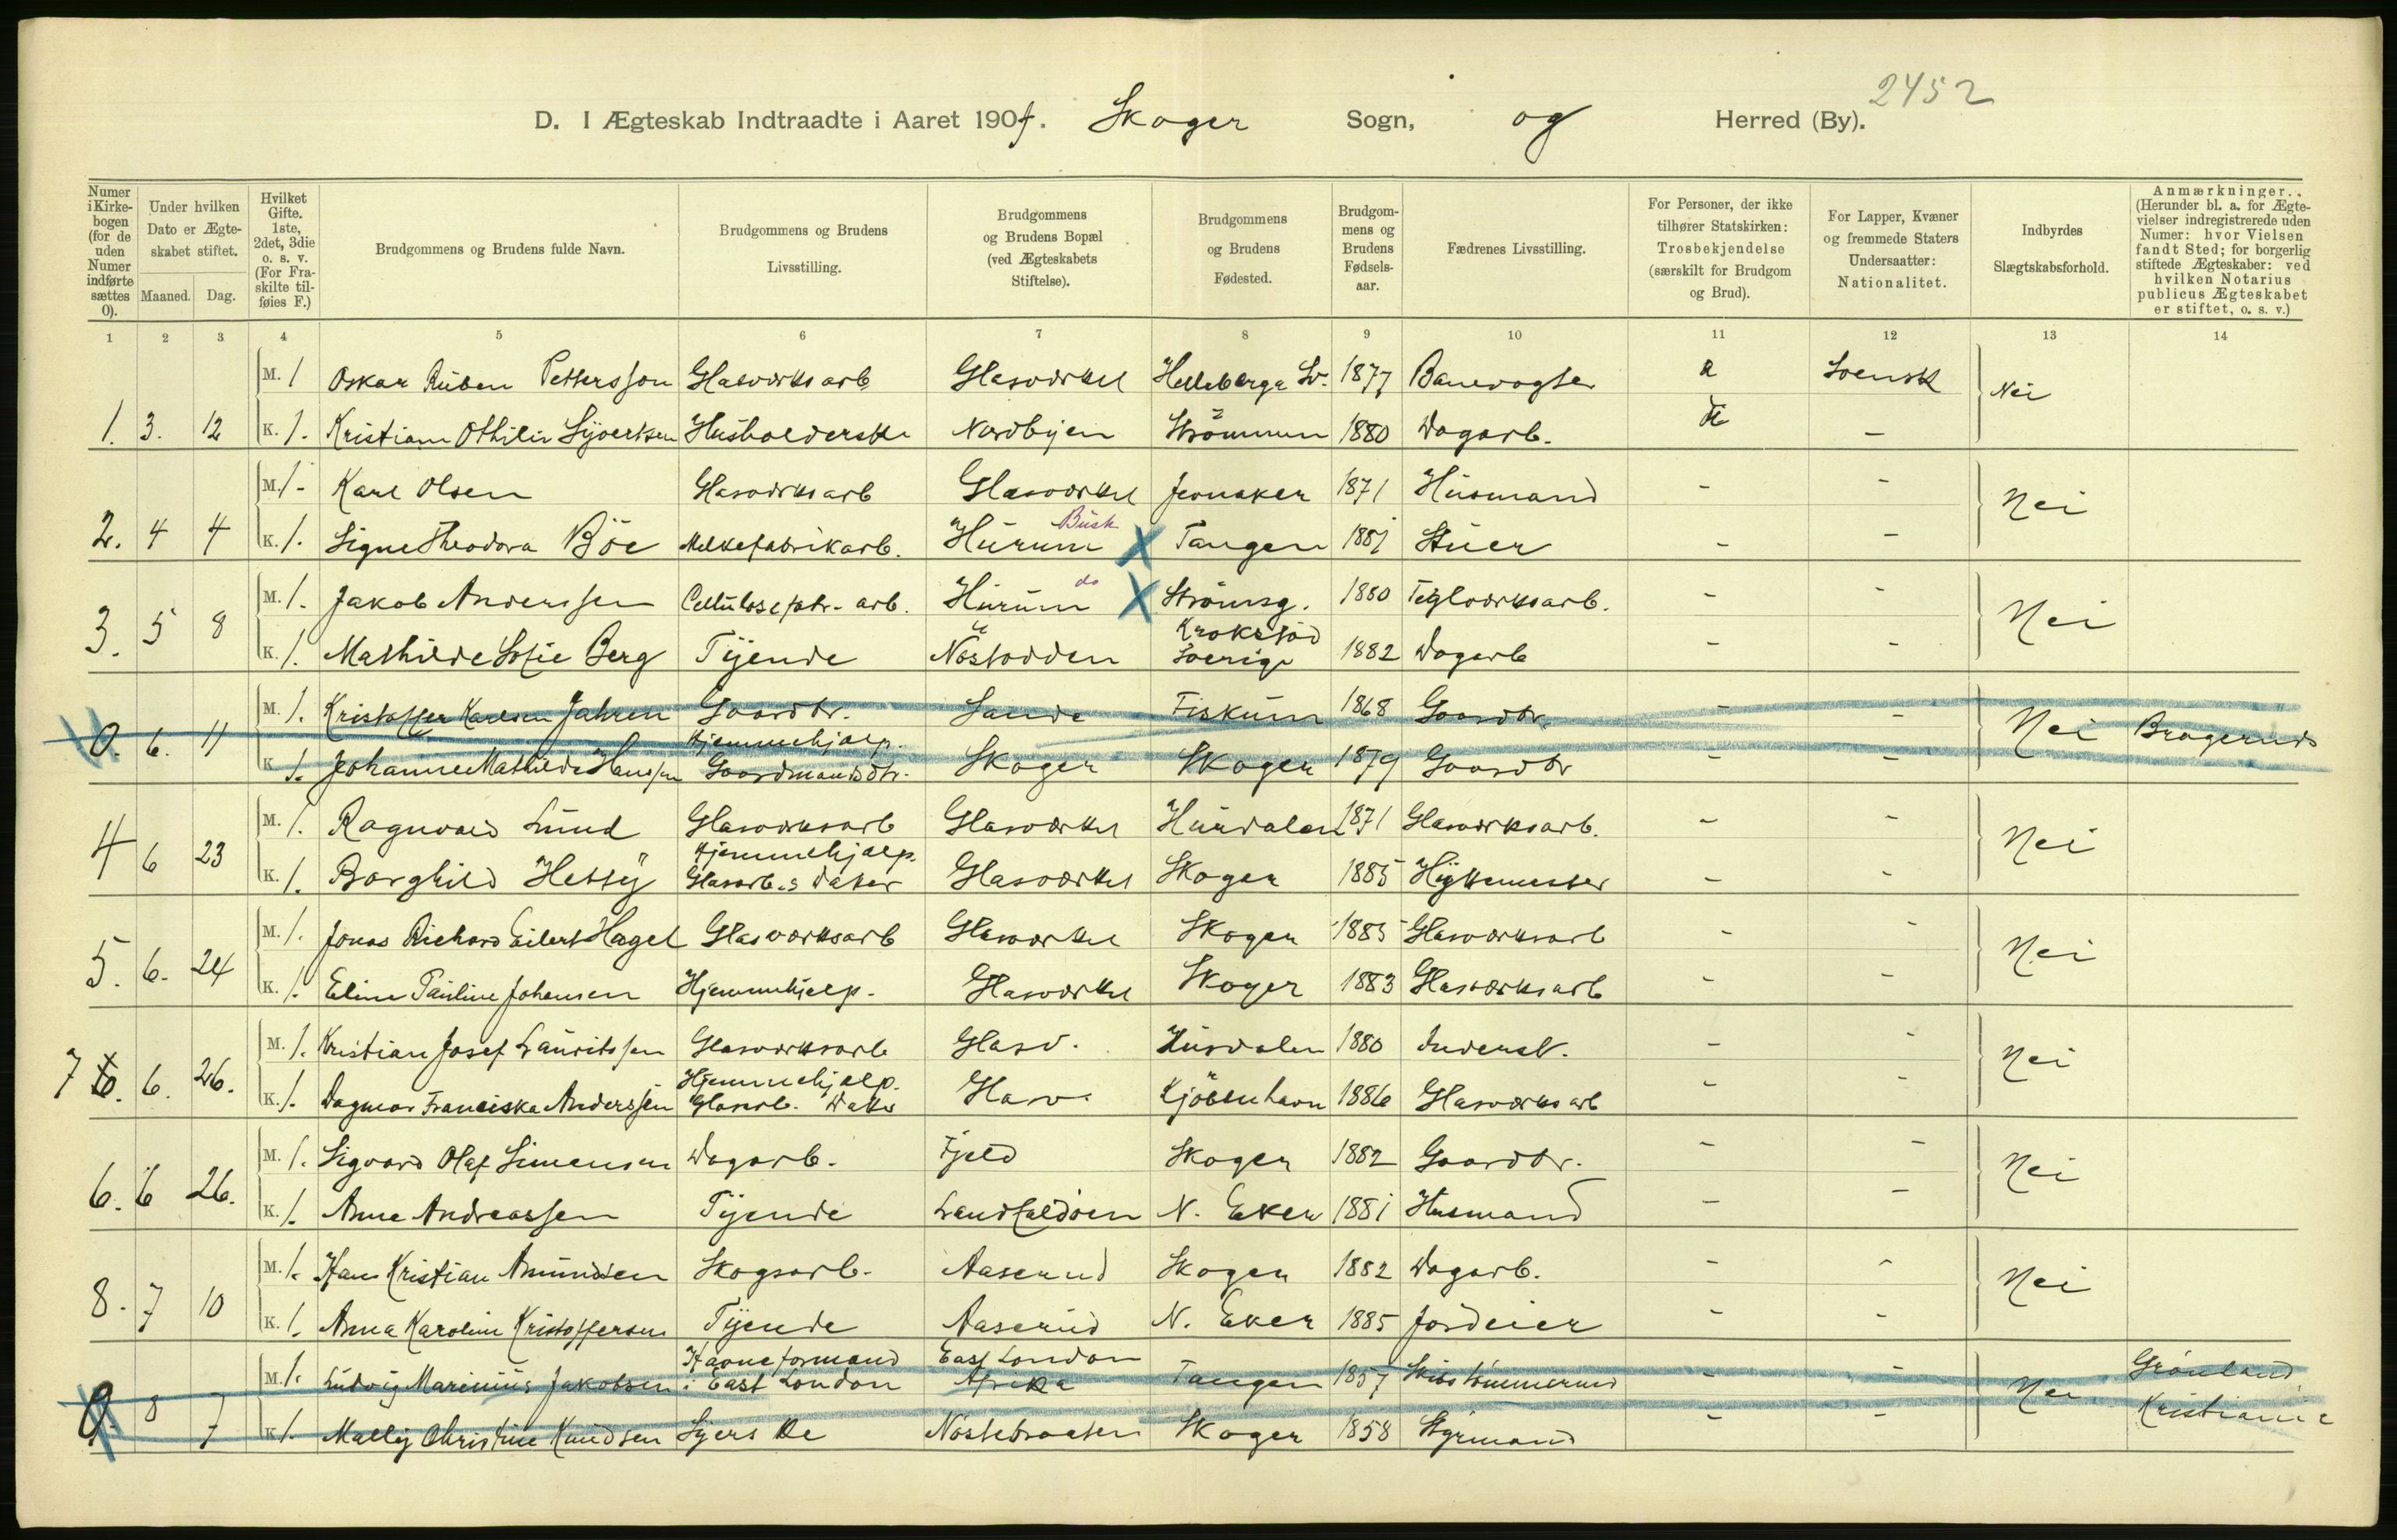 2452
D. I Ægteskab Indtraadte i Aaret 1904. Skoger Sogn, og Herred (By).
Numer i Kirke-bogen (for de uden Numer indførte sættes 0).
Under hvilken Dato er Ægte-skabet stiftet.
Maaned. Dag.
Hvilket Gifte. 1ste, 2det, 3die o. s. v. (For Fra-skilte til-føies F.)
Brudgommens og Brudens fulde Navn.
Brudgommens og Brudens Livsstilling.
Brudgommens og Brudens Bopæl (ved Ægteskabets Stiftelse).
Brudgommens og Brudens Fødested.
Brudgom-mens og Brudens Fødsels-aar.
Fædrenes Livsstilling.
For Personer, der ikke tilhører Statskirken: Trosbekjendelse (særskilt for Brudgom og Brud).
For Lapper, Kvæner og fremmede Staters Undersaatter: Nationalitet.
Indbyrdes Slægtskabsforhold.
Anmærkninger. (Herunder bl. a. for Ægte-vielser indregistrerede uden Numer: hvor Vielsen fandt Sted; for borgerlig stiftede Ægteskaber: ved hvilken Notarius publicus Ægteskabet er stiftet, o. s. v.)
1 2 3 4 5 6 7 8 9 10 11 12 13 14
M. 1 Oskar Ruben Pettersson Glasværksarb Glasværket Helleberga Sv. 1877 Banevogter Svensk Nei
1. 3. 12 K. 1. Kristiane Othilie Syvertsen Husholderske Nordbyen Strömmen 1880 Dagarb. -
M. 1- Karl Olsen Glasværksarb Glasværket Jevnaker 1871 Husmand - - Nei
2. 4 4 K. 1. Signe Theodora Böe Melkefabrikarb. Hurum Busk X Tangen 1881 Stuer - -
M. 1. Jakob Anderssen Cellulosefabr-arb. Hurum do X Strömsg. 1880 Teglværksarb. - - Nei
3. 5 8 K. 1. Mathilde Sofie Berg Tjende Nöstodden Krokstad Sverige 1882 Dagarb - -
M. 1. Kristoffer Karlsen Jahren Gaardbr. Sande Fiskum 1868 Gaardbr. - - Nei Bragernes
0. 6. 11 K 1. Johanne Mathilde Hanssen Hjemmehjælp. Gaardmandsdtr. Skoger Skoger 1879 Gaardbr - -
M. 1. Ragnvald Lund Glasværksarb Glasværket Hurdalen 1871 Glasværksarb. - - Nei
4 6 23 K. 1. Borghild Hessy Hjemmehjælp. Glasarb.s Datter Glasværket Skoger 1885 Hyttemester - -
M. 1. Jonas Richard Eilert Hagel Glasværksarb Glasværket Skoger 1885 Glasværksarb - - Nei
5. 6. 24 K. 1. Eline Pauline Johansen Hjemmehjælp. Glasværket Skoger 1883 Glasværksarb - -
M. 1. Kristian Josef Lauritssen Glasværksarb Glasv. Hurdalen 1880 Inderst. - - Nei
7 6. 6. 26. K. 1. Dagmar Franciska Anderssen Hjemmehjælp. Glasarb. Datter Glasv. Kjöbenhavn 1886 Glasværksarb - -
M. 1. Sigvard Olaf Simensen Dagarb. Fjeld Skoger 1882 Gaardbr. - - Nei
6. 6 26. K. 1. Anne Andreassen Tjende Landfaldöen N. Eker 1881 Husmand - -
M. 1. Hans Kristian Amundsen Skogsarb. Aaserud Skoger 1882 Dagarb. - - Nei
8. 7 10 K. 1. Anna Karoline Kristoffersen Tjende Aaserud N. Eker 1885 Jordeier - -
M. 1. Ludvig Marinius Jakobsen Havneformand i East London East London Afrika Tangen 1857 Skibstömmermand - - Nei Grönland
0 8 7 K 1. Mally Christine Knudsen Syerske Nöstebraaten Skoger 1858 Styrmand - - Kristiania